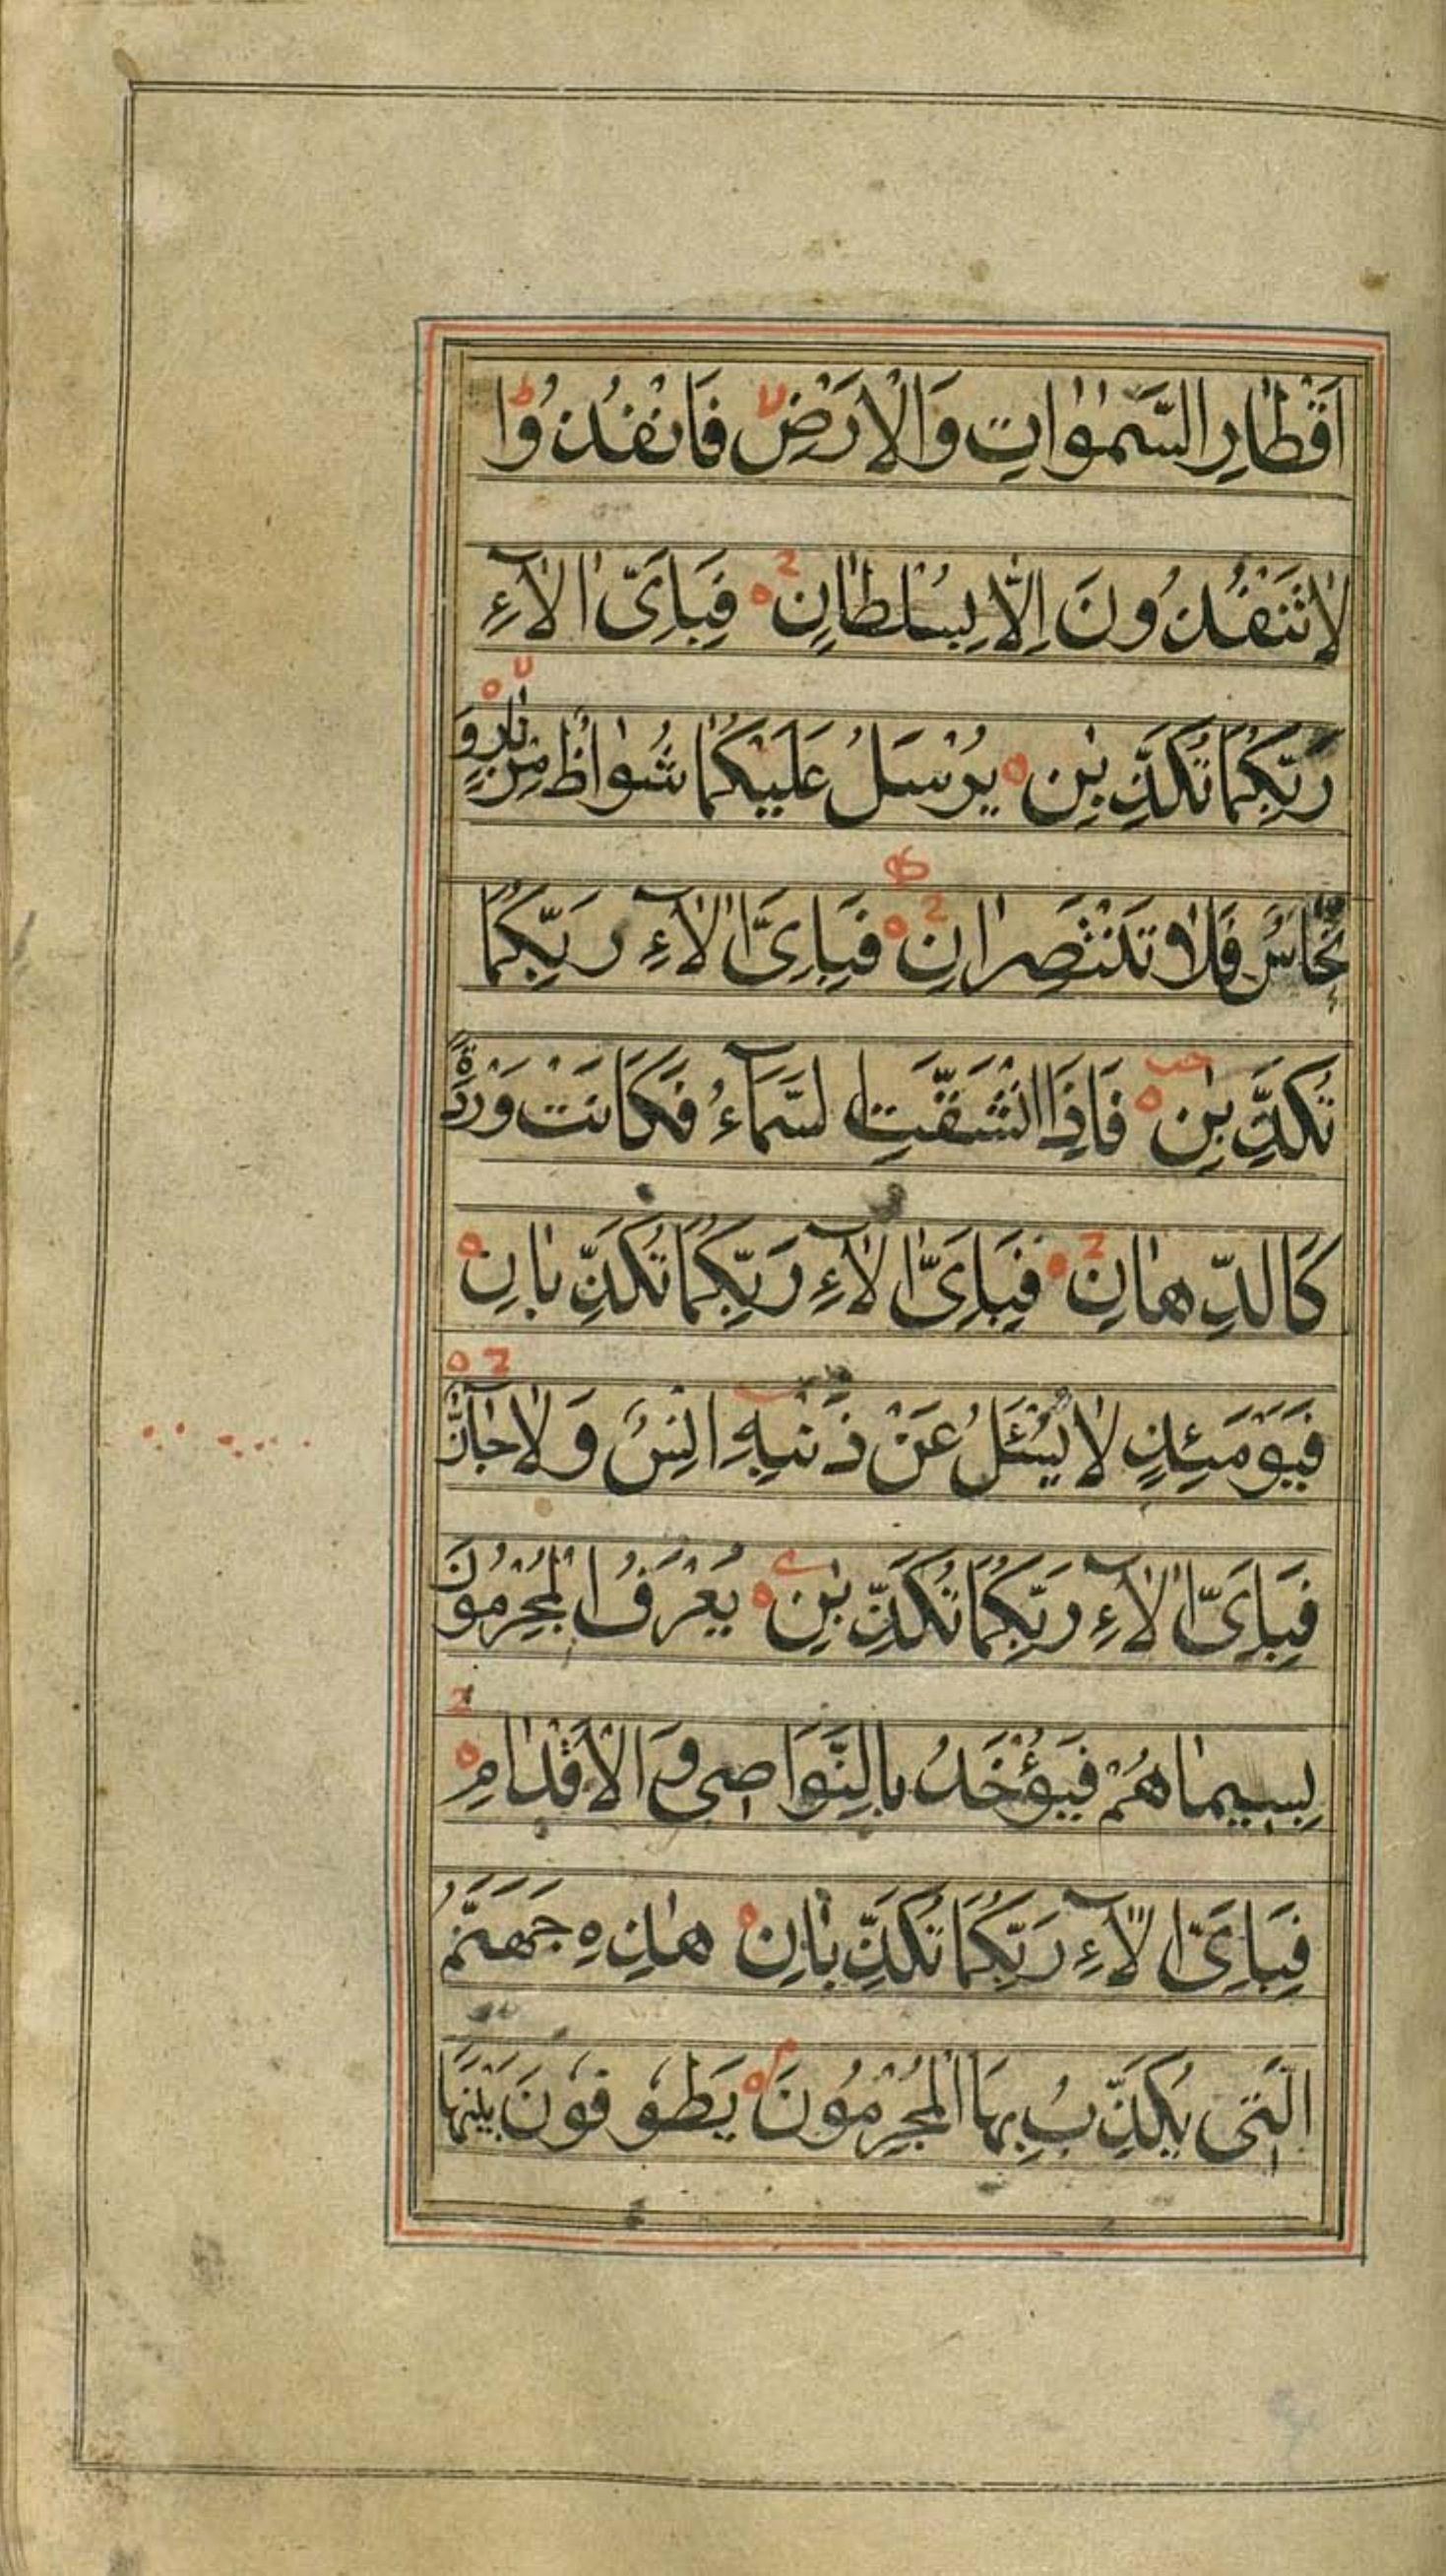 اَقْطَارِ السَّمٰوَاتِ وَالْاَرْضِ فَانْفُذُوْا
لَا تَنْفُذُوْنَ اِلَّا بِسُلْطَانٍ فَبِاَىِّ اٰلَآءِ
رَبِّكُمَا تُكَذِّبٰنِ يُرْسَلُ عَلَيْكُمَا شُوَاظٌ مِنْ نَارٍ وَ
نُحَاسٌ فَلَا تَنْتَصِرَانِ فَبِاَىِّ اٰلَآءِ رَبِّكُمَا
تُكَذِّبٰنِ فَاِذَا انْشَقَّتِ السَّمَآءُ فَكَانَتْ وَرْدَةً
كَالدِّهَانِ فَبِاَىِّ اٰلَآءِ رَبِّكُمَا تُكَذِّبَانِ
فَيَوْمَئِذٍ لَا يُسْئَلُ عَنْ ذَنْبِهِ اِنْسٌ وَلَا جَآنٌّ
فَبِاَىِّ اٰلَآءِ رَبِّكُمَا تُكَذِّبٰنِ يُعْرَفُ الْمُجْرِمُوْنَ
بِسِيمَاهُمْ فَيُؤْخَذُ بِالنَّوَاصِى وَالْاَقْدَامِ
فَبِاَىِّ اٰلَآءِ رَبِّكُمَا تُكَذِّبَانِ هٰذِهِ جَهَنَّمُ
الَّتِى يُكَذِّبُ بِهَا الْمُجْرِمُوْنَ يَطُوْفُوْنَ بَيْنَهَا